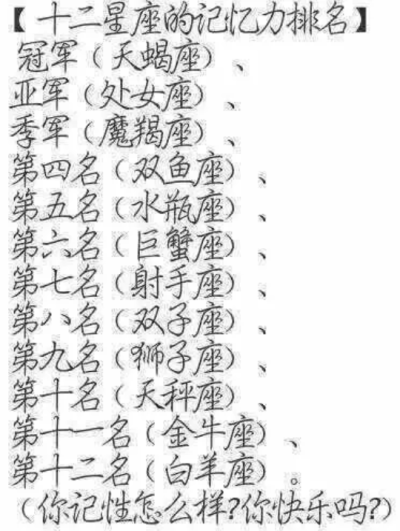 【十二星座的记忆力排名】
冠军(天蝎座)、
亚军(处女座)、
季军(魔羯座)、
第四名(双鱼座)、
第五名(水瓶座)、
第六名(巨蟹座)、
第七名(射手座)、
第八名(双子座)、
第九名(狮子座)、
第十名(天秤座)、
第十一名(金牛座)、
第十二名(白羊座)。
(你记性怎么样?你快乐吗?)